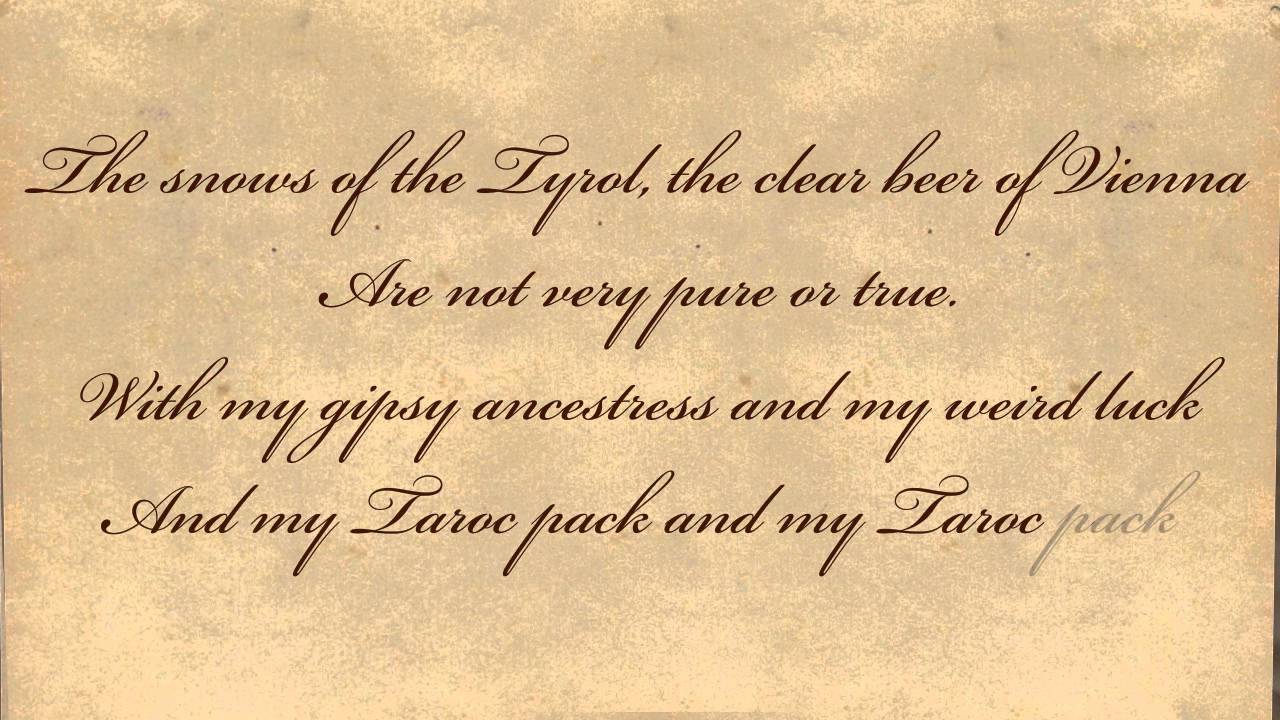 The snows of the Tyrol, the clear beer of Vienna
Are not very pure or true.
With my gipsy ancestress and my weird luck
And my Taroc pack and my Taroc pack